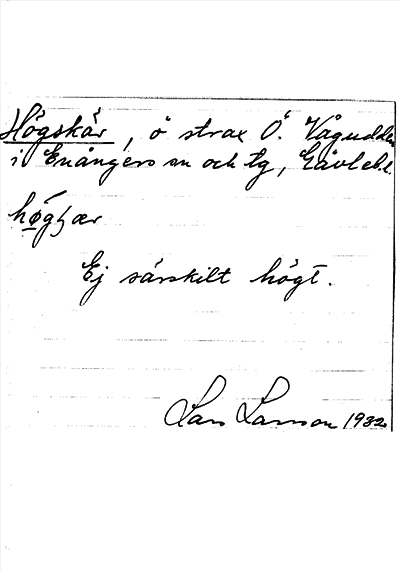 Högskär, ö strax Ö. Vågudden
i Enångers sn och tg, Gävleb.l.
högʃær
Ej särskilt högt.
Lars Larsson 1932